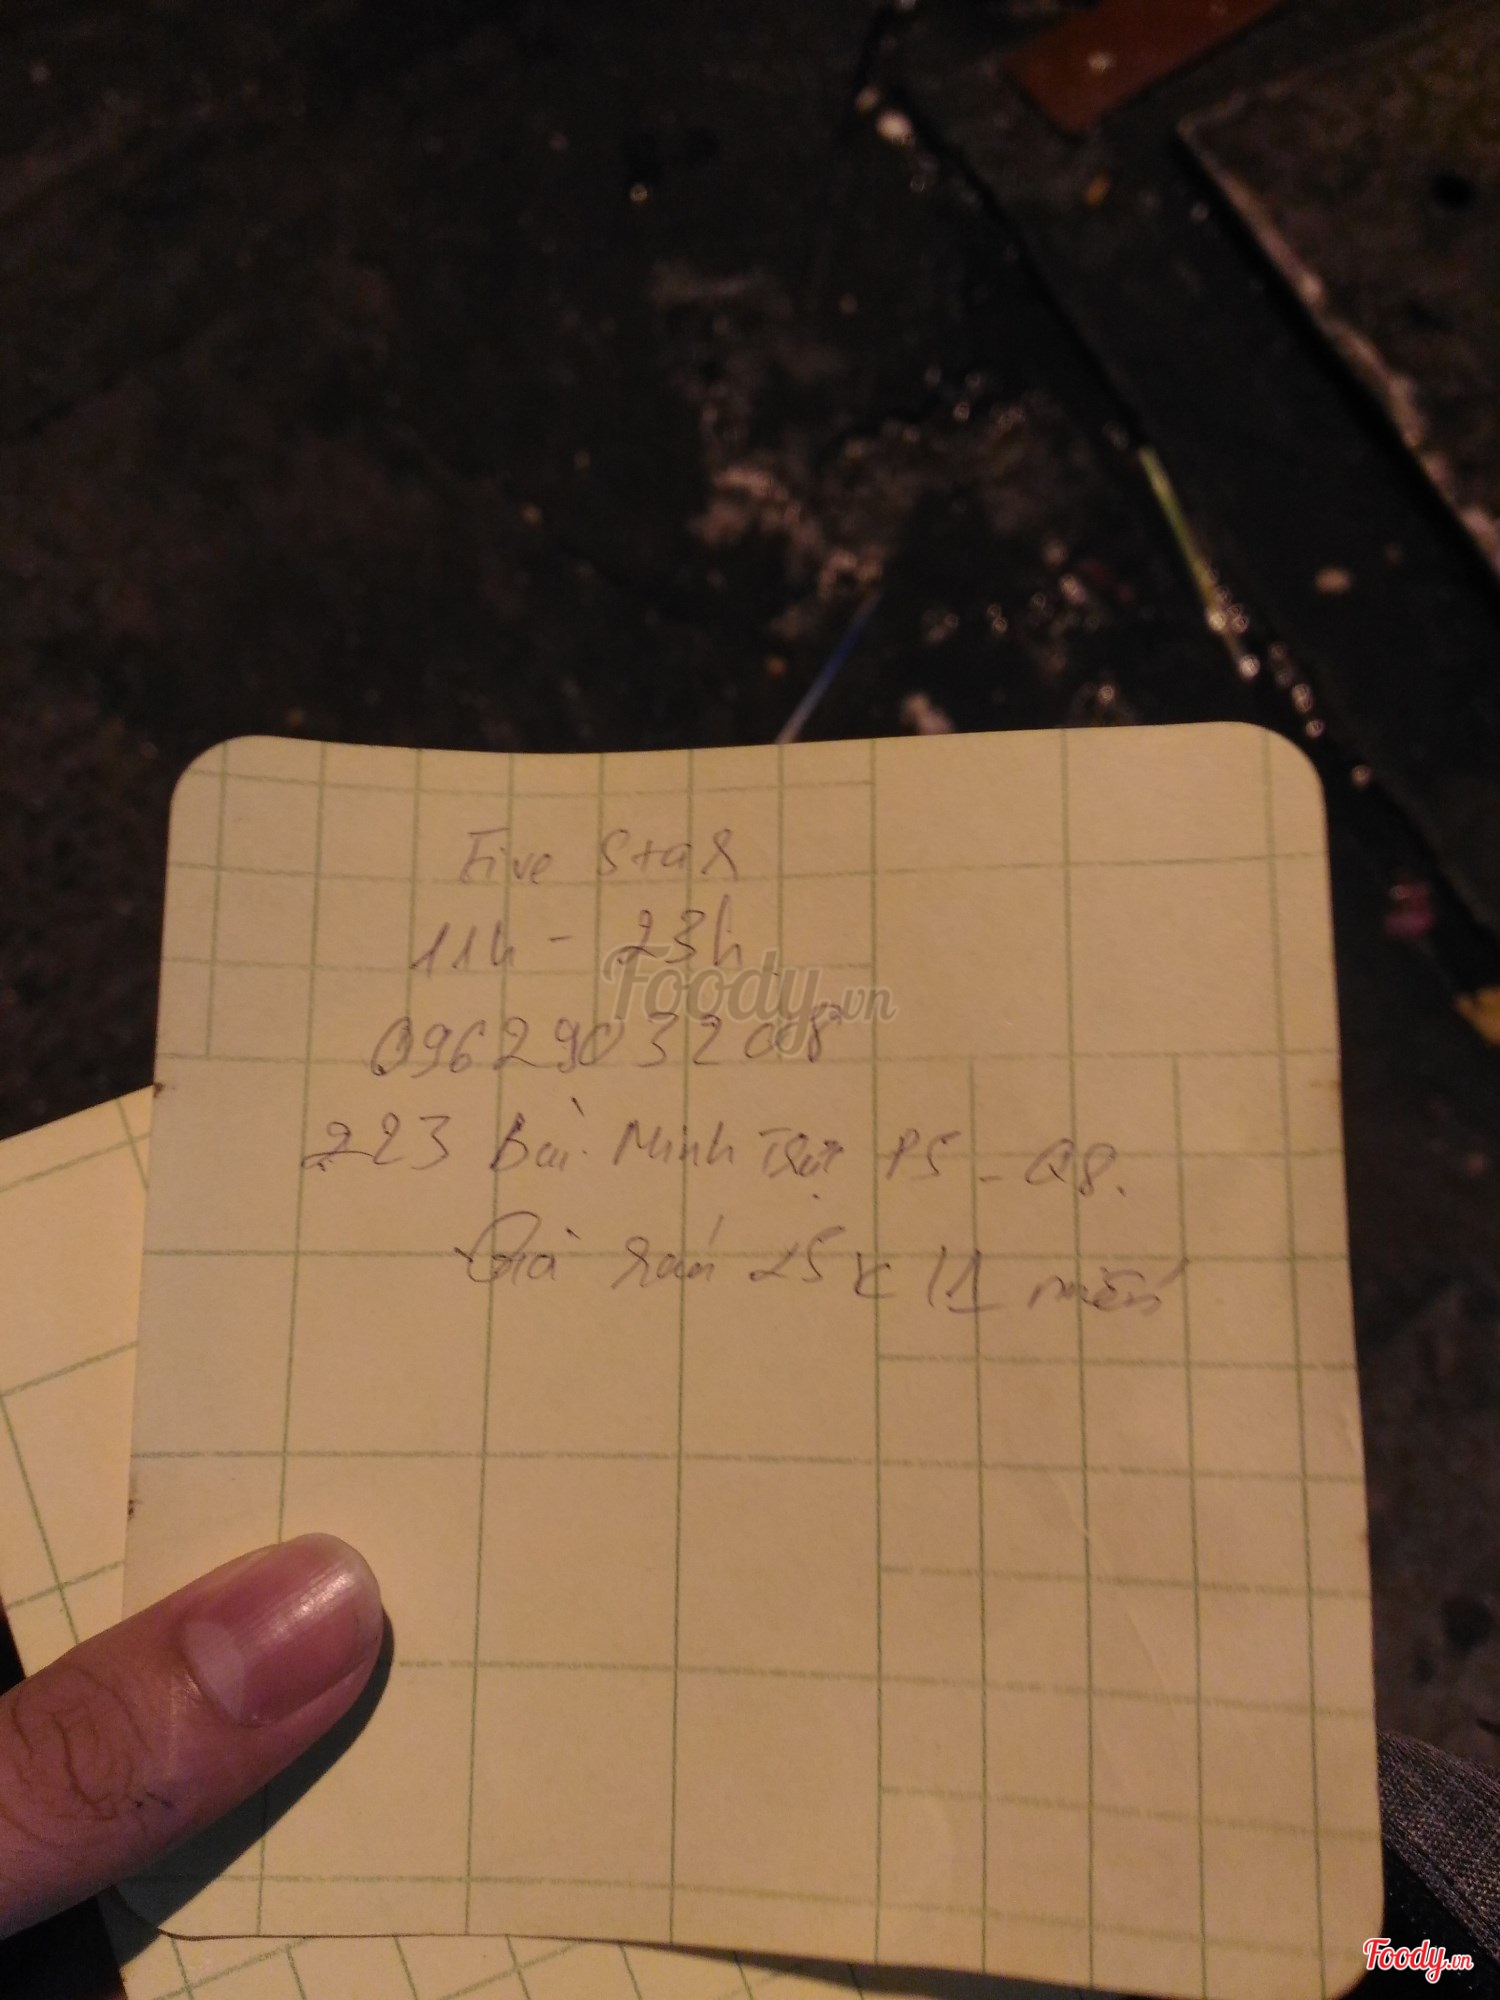 Five Star
11h - 23h
Foody.vn
0962903208
223 Bùi Minh Trực P5 - Q8.
Gà rán 25k /1 miếng
Foody.vn